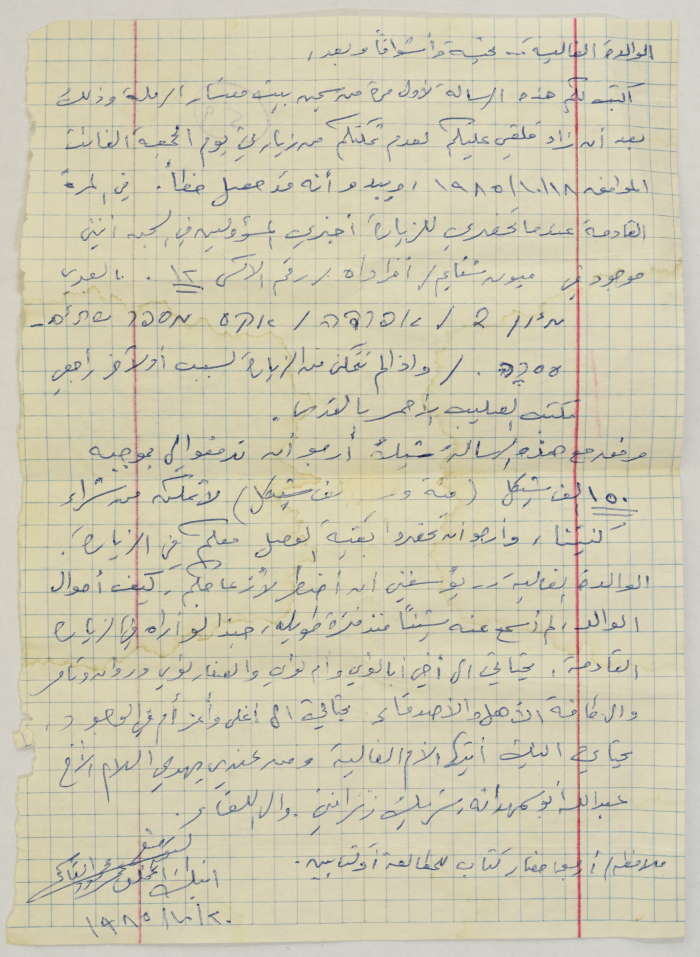 الوالدة الغالية .. تحية وأشواقاً وبعد،
اكتب لكم هذه الرسالة لأول مرة من سجن بيت معتسار الرملة وذلك
بعد أن زاد قلقي عليكم لعدم تمكنكم من زيارتي يوم الجمعة الفائت
الموافق ١٩٨٥/١٠/١٨ ، ويبدو أنه قد حصل خطأ. في المرة
القادمة عندما تحضري للزيارة أخبري المسؤولين في السجن أنني
موجود في / أفرداه / رقم الأكس ١٢ . بالعبري
/ אפרדה / אקס מספר שתים-
עסרה . / واذا لم نتمكن من الزيارة لسبب أو لآخر راجعي
مكتب الصليب الأحمر بالقدس .
مرفق مع هذه الرسالة شيك أرجو أن تدفعوا لي بموجبه
١٥٠ ألف شيكل ( مئة و ألف شيكل ) لأتمكن من شراء
كنتينا ، وأرجو أن تحضروا بقية الوصل معكم في الزيارة .
الوالدة الغالية .. يؤسفني أن أضطر لأزعاجكم ، كيف أحوال
الوالد ، لم أسمع عنه شيئاً منذ فترة طويلة ، حبذا لو أراه في الزيارة
القادمة . تحياتي الى أخي أبا لؤي وأم لؤي والصغار لؤي وروان وتامر
والى كافة الأهل والأصدقاء تحياتي الى أغلى وأعز أم في الوجود ،
تحياتي اليك أيتها الأم الغالية ومن عندي يهدي السلام الأخ
عبدالله أبو شريك زنزانتي . والى اللقاء .
ابنك المخلص
ملاحظة / أرجو احضار كتاب للمطالعة أو كتابين .
١٩٨٥/١٠/٢٠